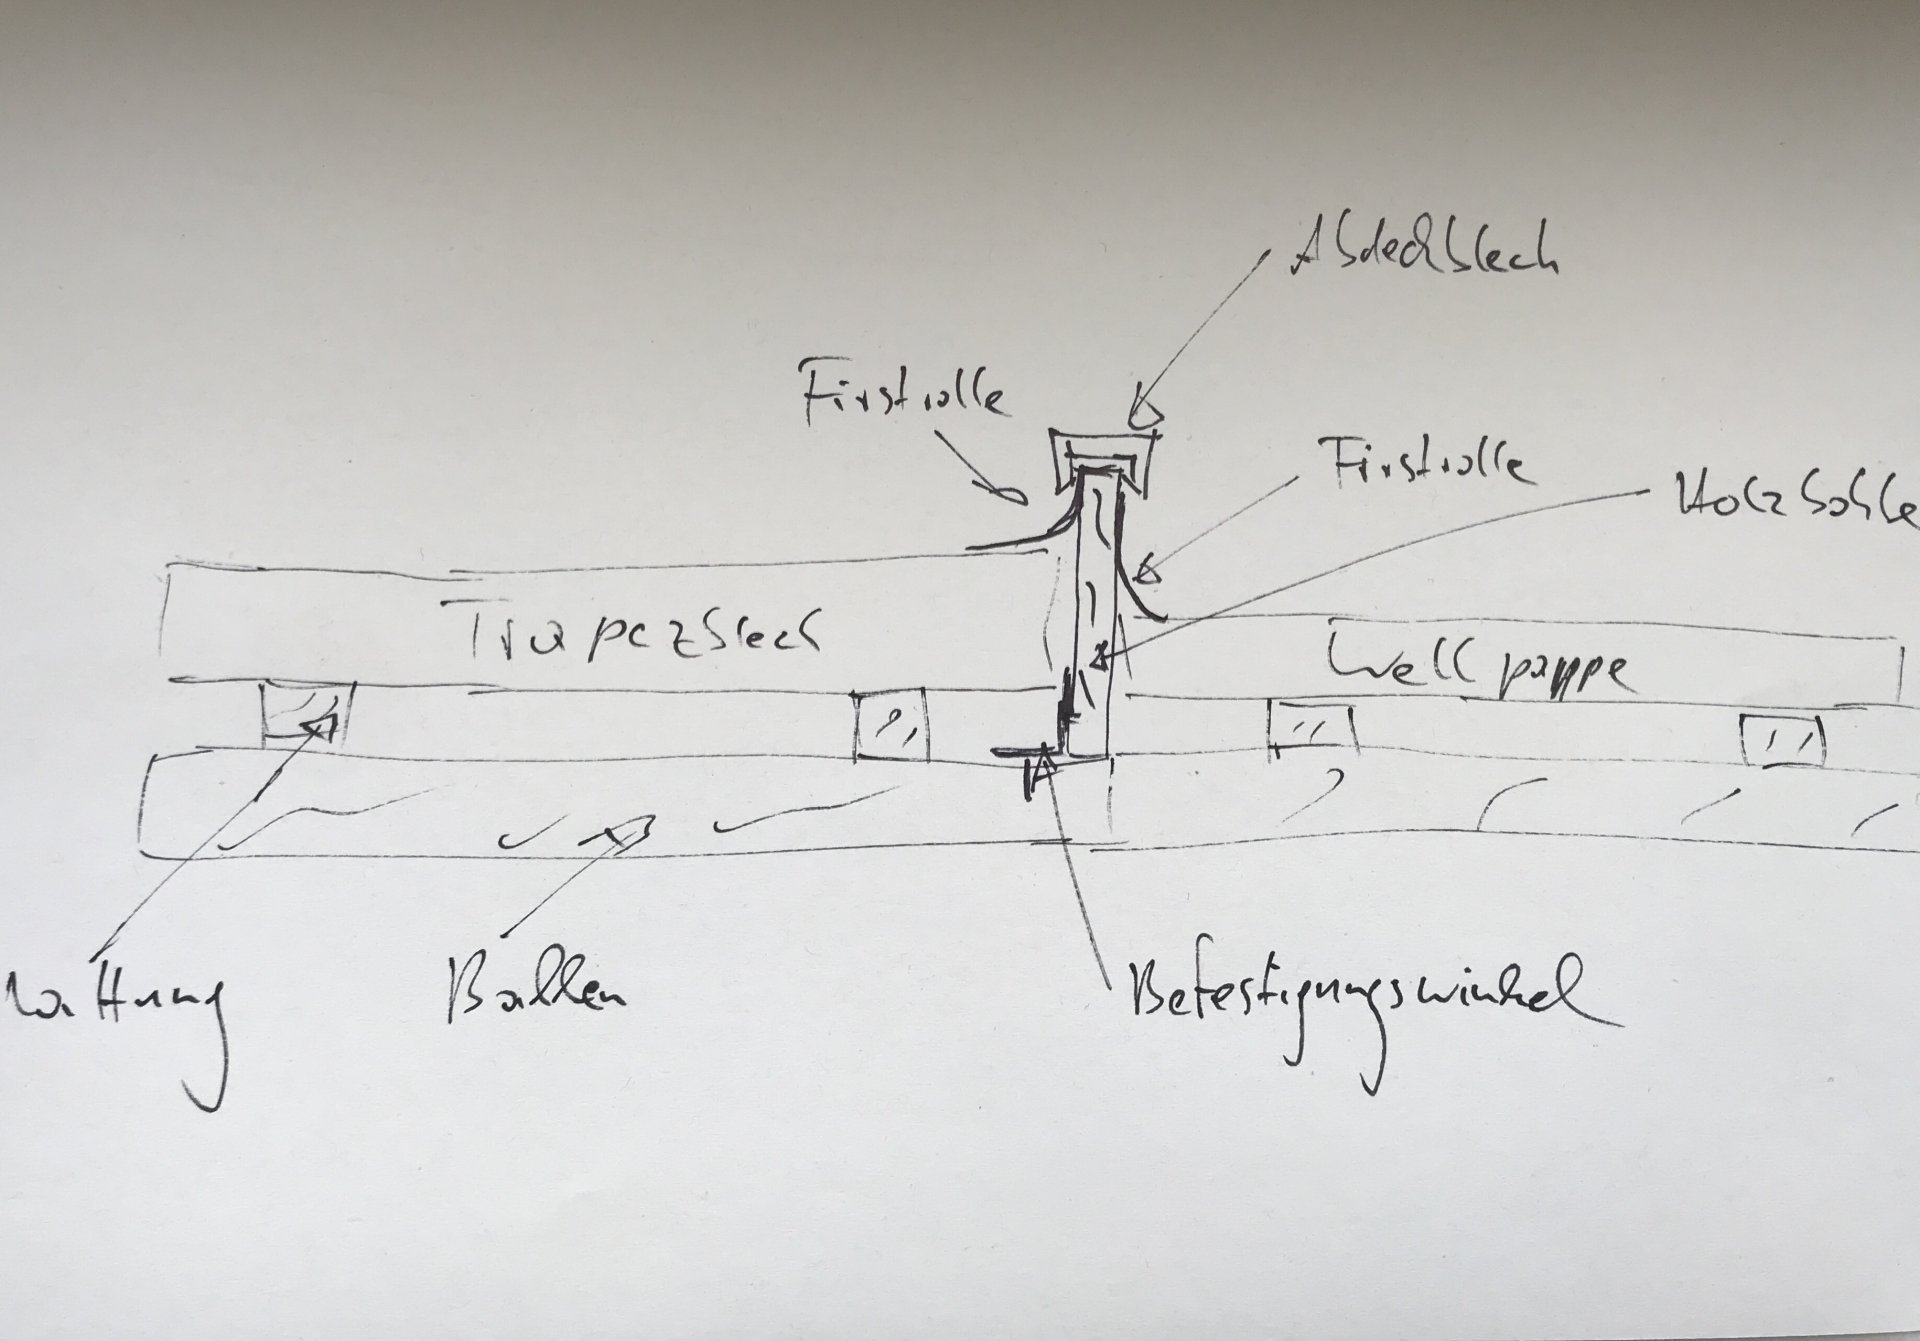 Abdeckblech
Firstrolle
Firstrolle
Holzbohle
Trapezblech
Wellpappe
Lattung
Balken
Befestigungswinkel